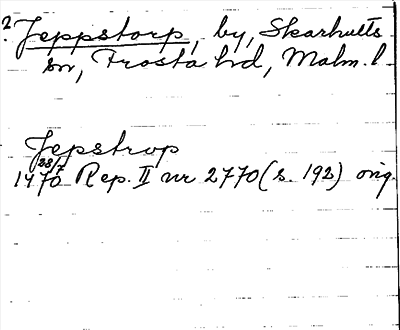 ? Jeppstorp, by, Skarhults
sn, Frosta hd, Malm. l.
Jepstrup
28/7
1470 Rep. II nr 2770 (s. 192) orig.